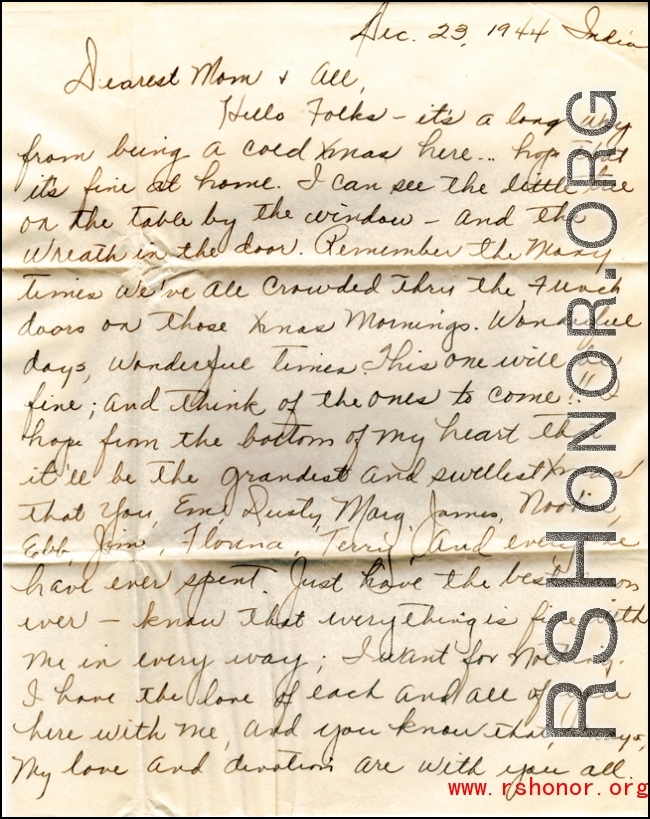 Dec. 23, 1944 India
Dearest Mom & All,
Hello Folks - it's a long way
from being a cold Xmas here... hope that
it's fine at home. I can see the little tree
on the table by the window - and the
Wreath in the door. Remember the Many
times we've all crowded thru the French
doors on those Xmas Mornings. Wonderful
days, wonderful times. This one will be
fine; and think of the ones to come!! I
hope from the bottom of my heart that
it'll be the grandest and swellest Xmas
that You, Em, Dusty, Marg, James,
Ebb, Jim, Florina, Terry, and everyone
have ever spent. Just have the best
ever - know that everything is fine with
me in every way; I want for nothing.
I have the love of each and all of you
here with me, and you know that,
My love and devotion are with you all.
RSHONOR.ORG
www.rshonor.org